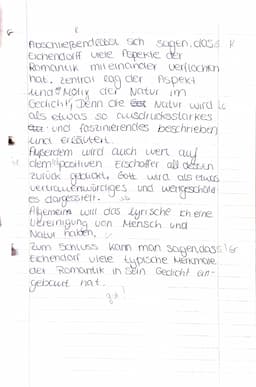 Abschließend lässt sich sagen, dass
Eichendorff viele Aspekte der
Romantik miteinander verflochten
hat. Zentral lag der Aspekt
und Motiv der Natur im
Gedicht, Denn die Natur wird
als etwas so ausdrucksstarkes
und faszinierendes beschrieben
und erläutert.
Außerdem wird auch wert auf
den positiven
zurück geblickt, Gott wird als etwas
vertrauenswürdiges und
es dargestellt.
Allgemein will das lyrische Ich eine
Vereinigung von Mensch und
Natur haben,
Zum Schluss kann man sagen, dass
Eichendorf viele typische Merkmale
der Romantik in sein Gedicht ein-
gebaut hat.